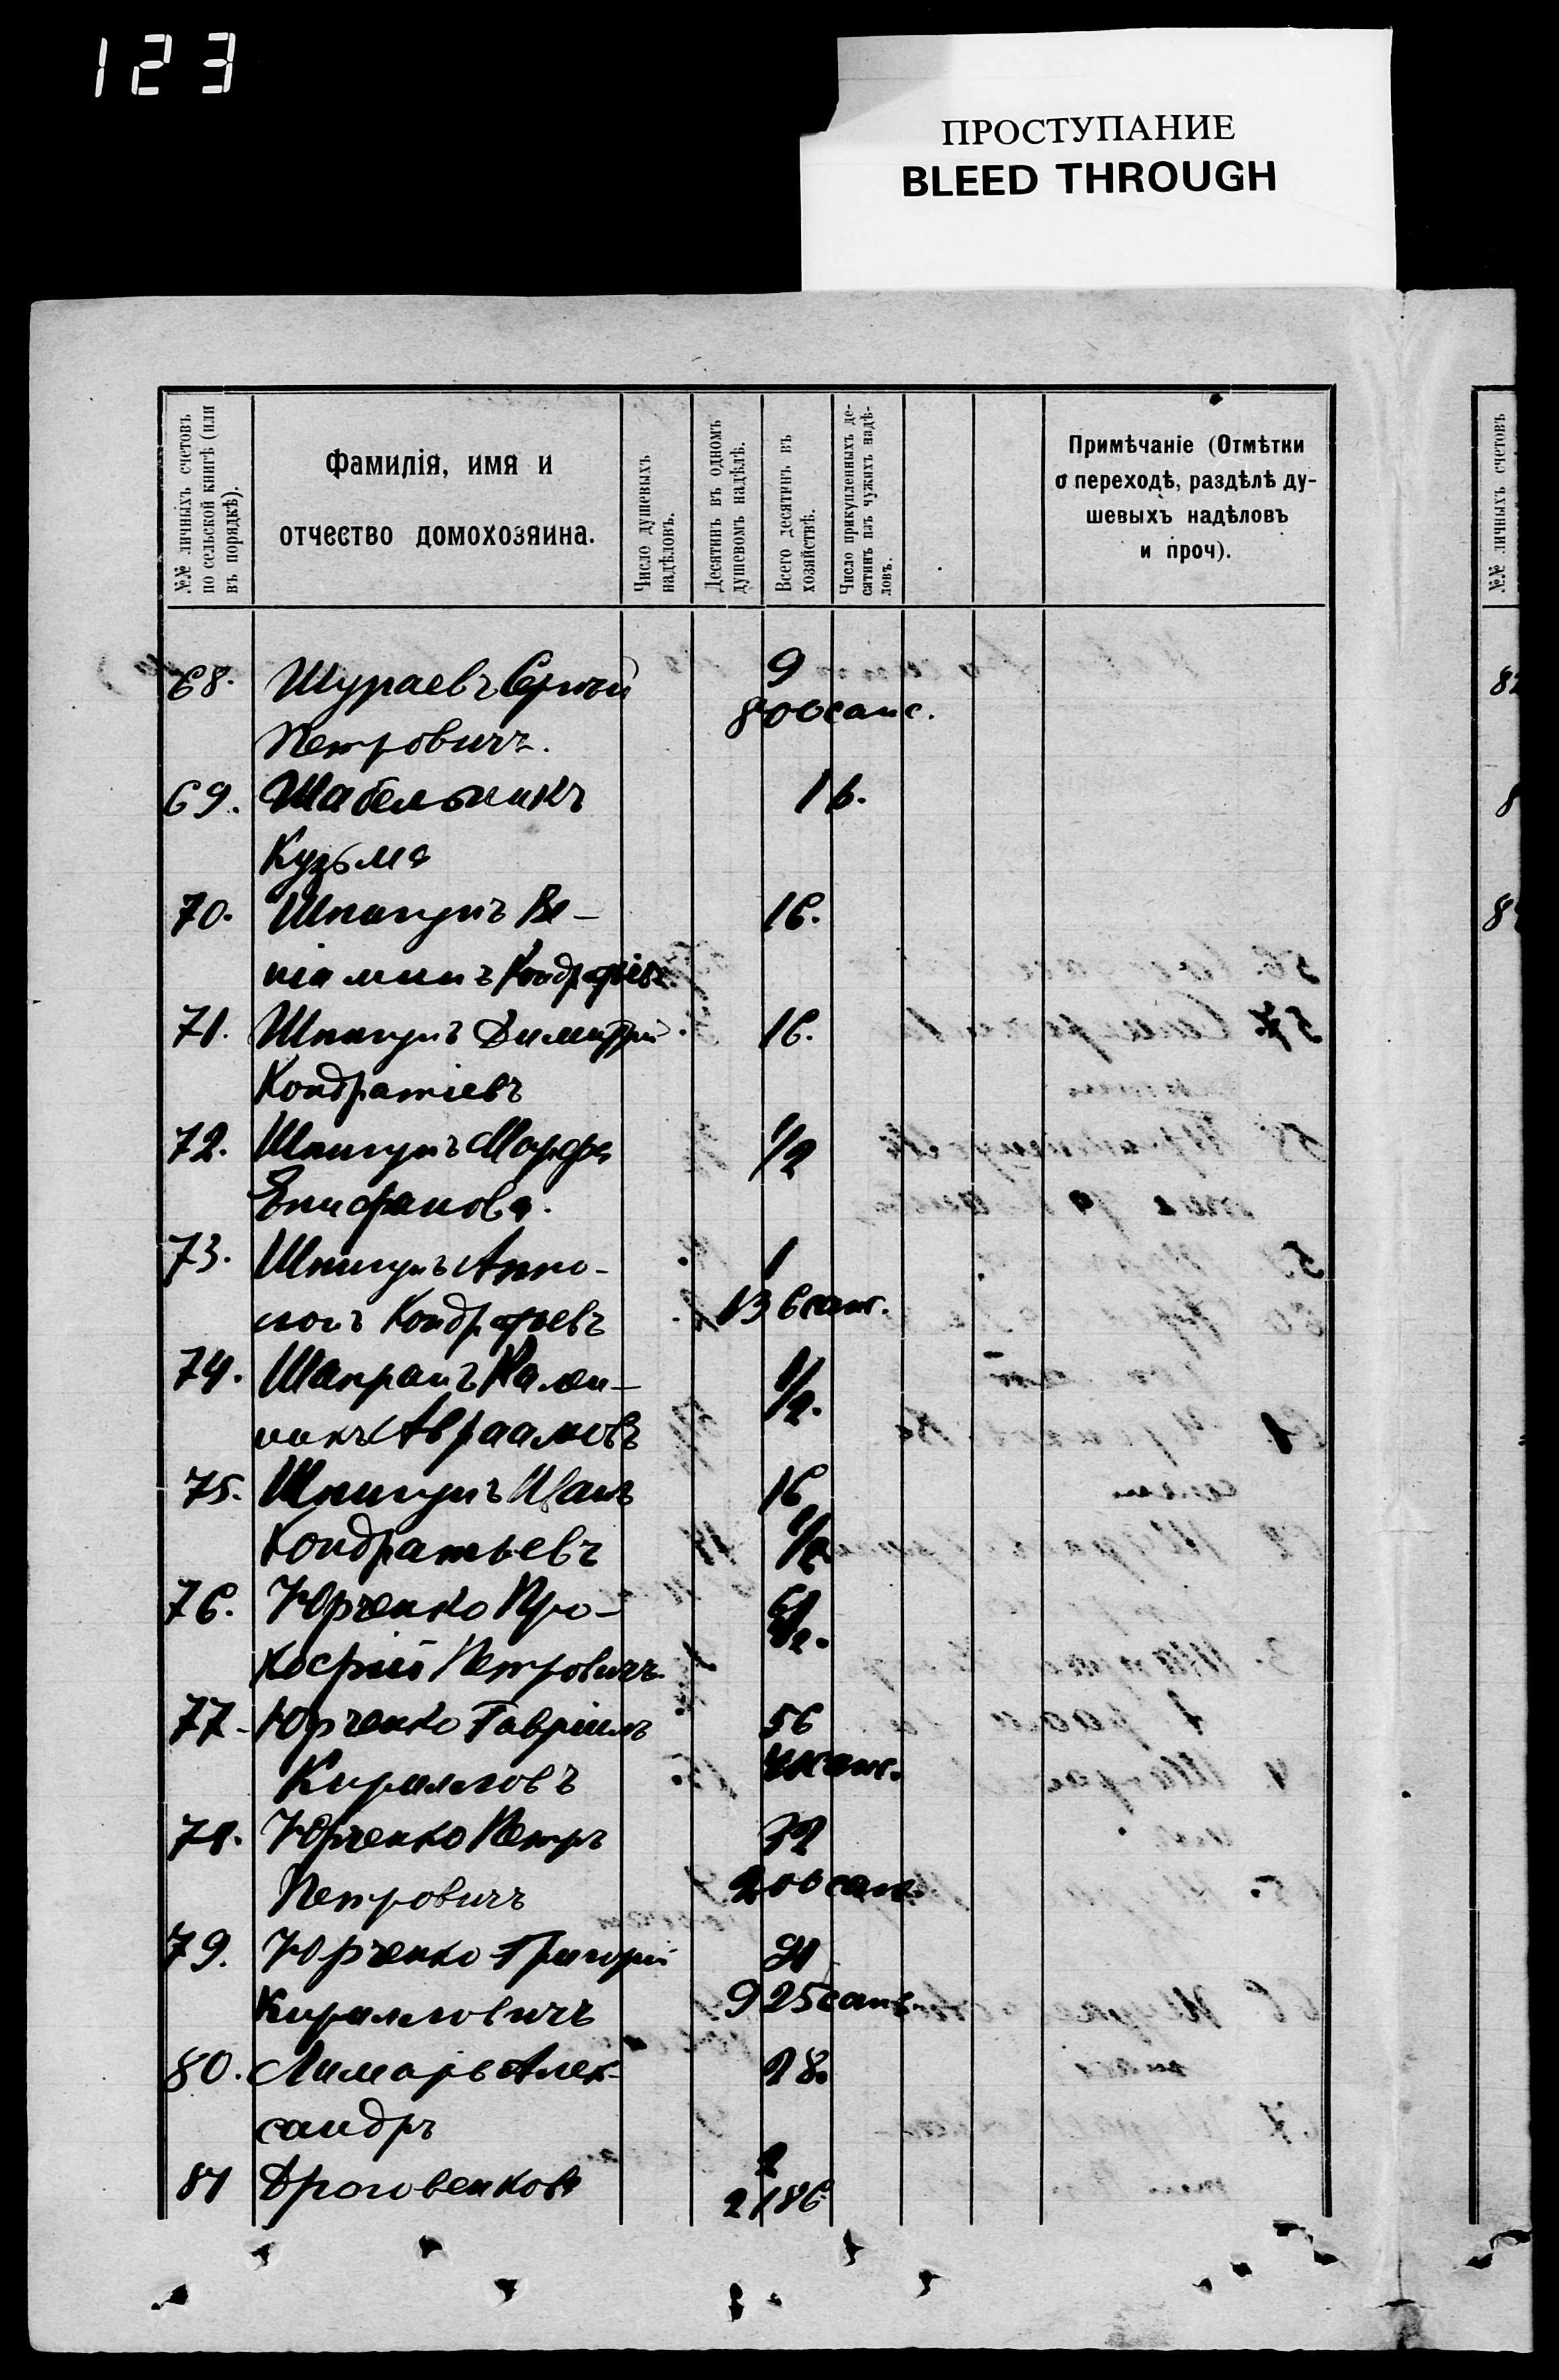 123
ПРОСТУПАНИЕ
BLEED THROUGH
№№ личныхъ счетовъ
по сельской книгѣ (или
въ порядкѣ).
Фамилія, имя и
отчество домохозяина.
Число душевыхъ
надѣловъ.
Десятинъ въ одномъ
душевомъ надѣлѣ.
Всего десятинъ въ
хозяйствѣ.
Число прикупленныхъ де-
сятинъ изъ чужихъ надѣ-
ловъ.
Примѣчаніе (Отмѣтки
о переходѣ, раздѣлѣ ду-
шевыхъ надѣловъ
и проч).
№№ личныхъ счетовъ
68. Шураевъ Сергѣй 9
Петровичъ. 800 саж.
69. Шабельникъ 16.
Кузьма
70. Шпигунъ Ве- 16.
ніаминъ Кондратьевъ
71. Шпигунъ Димитрій 16.
Кондратіевъ
72. Шпигунъ Марфа 1/2
Епифанова.
73. Шпигунъ 1
Кондратьевъ 136 саж.
74. Шапранъ Кали- 1/2.
никъ Авраамовъ
75. Шпигунъ Иванъ 16
Кондратьевъ 1/2
76. Юрченко Про-
кофій Петровичъ
77. Юрченко Гавріилъ 56
Кирилловъ саж.
78. Юрченко Петръ
Петровичъ 200 саж.
79. Юрченко Григорій
Кирилловичъ 925 саж.
80. Лимарь Алек- 28.
сандръ
81 2
2186